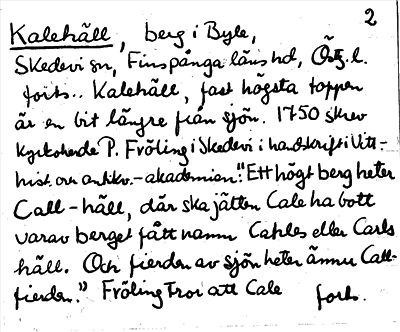 2
Kalehäll, berg i Byle,
Skedevi sn, Finspånga läns hd, Östg. l.
forts.. Kalehäll, fast högsta toppen
är en bit längre från sjön. 1750 skrev
kyrkoherde P. Fröling i Skedevi i handskrift i Vitt-
hist. och antikv.-akademien: "Ett högt berg heter
Call-häll, där ska jätten Cale ha bott
varav berget fått namn Cahles eller Carls
häll. Och fierden av sjön heter ännu Call-
fierden." Fröling tror att Cale forts.